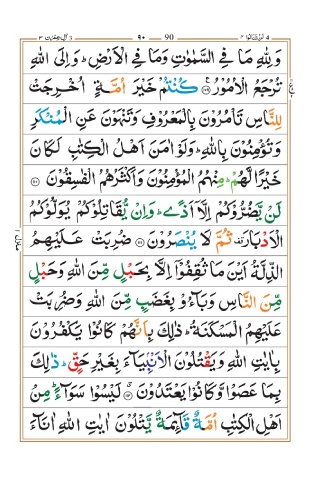 لن تنالوا ٤ ٩٠ 90 اٰل عمرٰن ٣
وَلِلّٰهِ مَا فِى السَّمٰوٰتِ وَمَا فِى الْاَرْضِ ؕ وَاِلَى اللّٰهِ
تُرْجَعُ الْاُمُوْرُ ﴿۱۰۹﴾ كُنْتُمْ خَيْرَ اُمَّةٍ اُخْرِجَتْ
لِلنَّاسِ تَاْمُرُوْنَ بِالْمَعْرُوْفِ وَتَنْهَوْنَ عَنِ الْمُنْكَرِ
وَتُؤْمِنُوْنَ بِاللّٰهِ ؕ وَلَوْ اٰمَنَ اَهْلُ الْكِتٰبِ لَكَانَ
خَيْرًا لَّهُمْ ؕ مِنْهُمُ الْمُؤْمِنُوْنَ وَاَكْثَرُهُمُ الْفٰسِقُوْنَ ﴿۱۱۰﴾
لَنْ يَّضُرُّوْكُمْ اِلَّاۤ اَذًى ؕ وَاِنْ يُّقَاتِلُوْكُمْ يُوَلُّوْكُمُ
الْاَدْبَارَ ثُمَّ لَا يُنْصَرُوْنَ ﴿۱۱۱﴾ ضُرِبَتْ عَلَيْهِمُ
الذِّلَّةُ اَيْنَ مَا ثُقِفُوْۤا اِلَّا بِحَبْلٍ مِّنَ اللّٰهِ وَحَبْلٍ
مِّنَ النَّاسِ وَبَآءُوْ بِغَضَبٍ مِّنَ اللّٰهِ وَضُرِبَتْ
عَلَيْهِمُ الْمَسْكَنَةُ ؕ ذٰلِكَ بِاَنَّهُمْ كَانُوْا يَكْفُرُوْنَ
بِاٰيٰتِ اللّٰهِ وَيَقْتُلُوْنَ الْاَنْۢبِيَآءَ بِغَيْرِ حَقٍّ ؕ ذٰلِكَ
بِمَا عَصَوْا وَّكَانُوْا يَعْتَدُوْنَ ﴿۱۱۲﴾ لَيْسُوْا سَوَآءً ؕ مِنْ
اَهْلِ الْكِتٰبِ اُمَّةٌ قَآئِمَةٌ يَّتْلُوْنَ اٰيٰتِ اللّٰهِ اٰنَآءَ